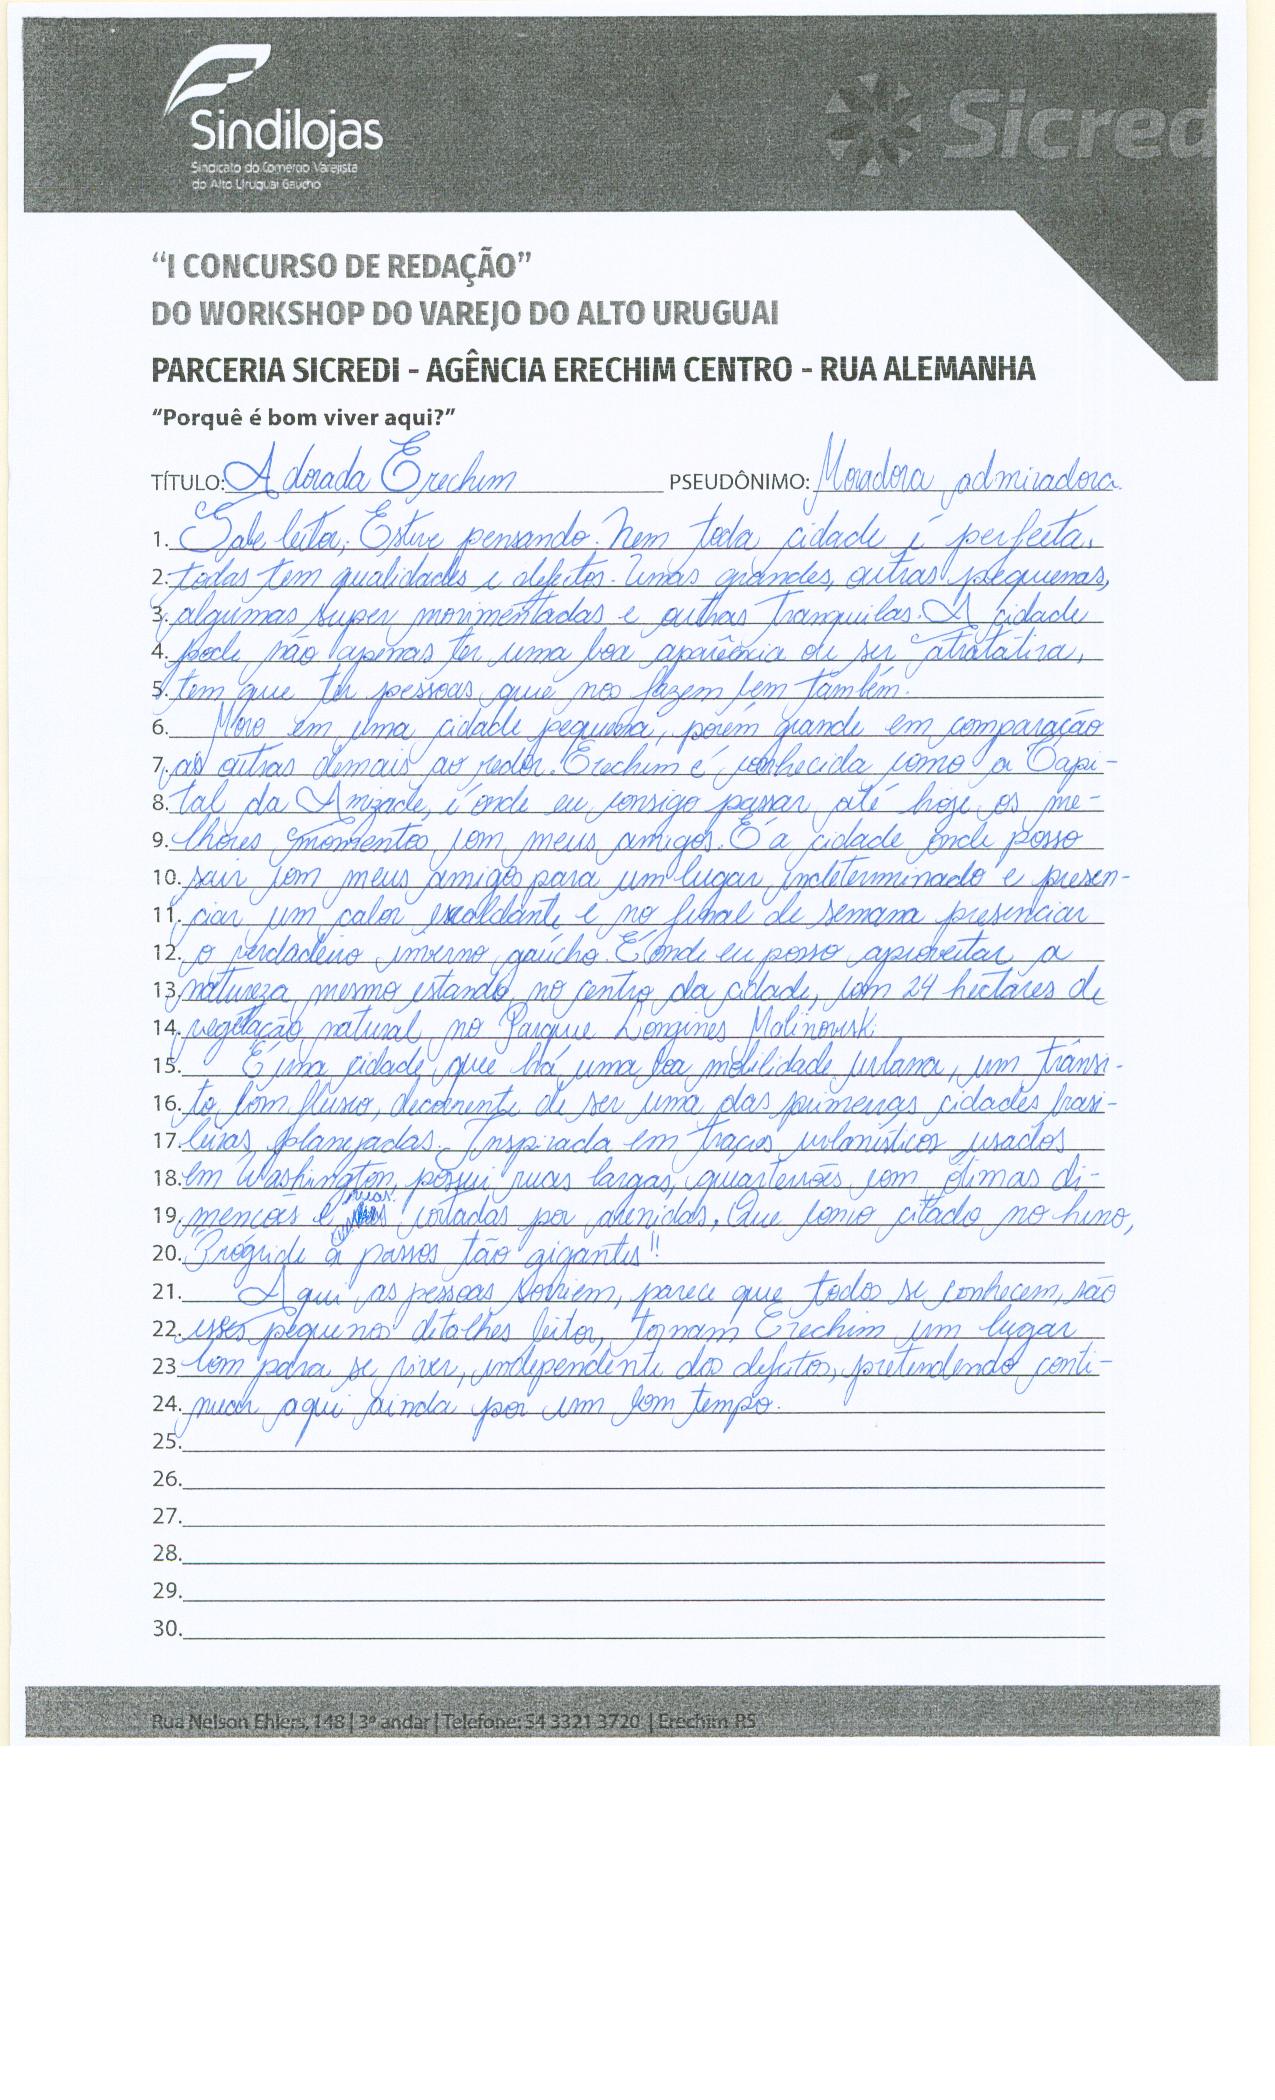 Sindilojas
Sindicato do Comércio Varejista
do Alto Uruguai Gaúcho
Sicred
“I CONCURSO DE REDAÇÃO”
DO WORKSHOP DO VAREJO DO ALTO URUGUAI
PARCERIA SICREDI - AGÊNCIA ERECHIM CENTRO - RUA ALEMANHA
“Porquê é bom viver aqui?”
TÍTULO: Adorada Erechim PSEUDÔNIMO: Moradora admiradora.
1. Sabe leitor, Estive pensando. Nem toda cidade é perfeita,
2. todas tem qualidades e defeitos. Umas grandes, outras pequenas,
3. algumas super movimentadas e outras tranquilas. A cidade
4. pode não apenas ter uma boa aparência ou ser atratátiva,
5. tem que ter pessoas que nos fazem bem também.
6. Moro em uma cidade pequena, porém grande em comparação
7. as outras demais ao redor. Erechim é conhecida como a Capi-
8. tal da Amizade, é onde eu consigo passar até hoje os me-
9. lhores momentos com meus amigos. É a cidade onde posso
10. sair com meus amigos para um lugar indeterminado e presen-
11. ciar um calor escaldante e no final de semana presenciar
12. o verdadeiro inverno gaúcho. É onde eu posso aproveitar a
13. natureza mesmo estando no centro da cidade, com 24 hectares de
14. vegetação natural no Parque Longines Malinowski.
15. É uma cidade que há uma boa mobilidade urbana, um trânsi-
16. to bom fluxo, decorrente de ser uma das primeiras cidades brasi-
17. leiras planejadas. Inspirada em traços urbanísticos usados
18. em Washington, possui ruas largas, quarteirões com ótimas di-
19. menções e ruas cortadas por avenidas. Que como citado no hino,
20. "Progride a passos tão gigantes"!
21. Aqui as pessoas sorriem, parece que todos se conhecem, são
22. esses pequenos detalhes leitor, tornam Erechim um lugar
23. bom para se viver, independente dos defeitos, pretendendo conti-
24. nuar aqui ainda por um bom tempo.
25.
26.
27.
28.
29.
30.
Rua Nelson Ehlers, 148 | 3º andar | Telefone: 54 3321 3720 | Erechim RS